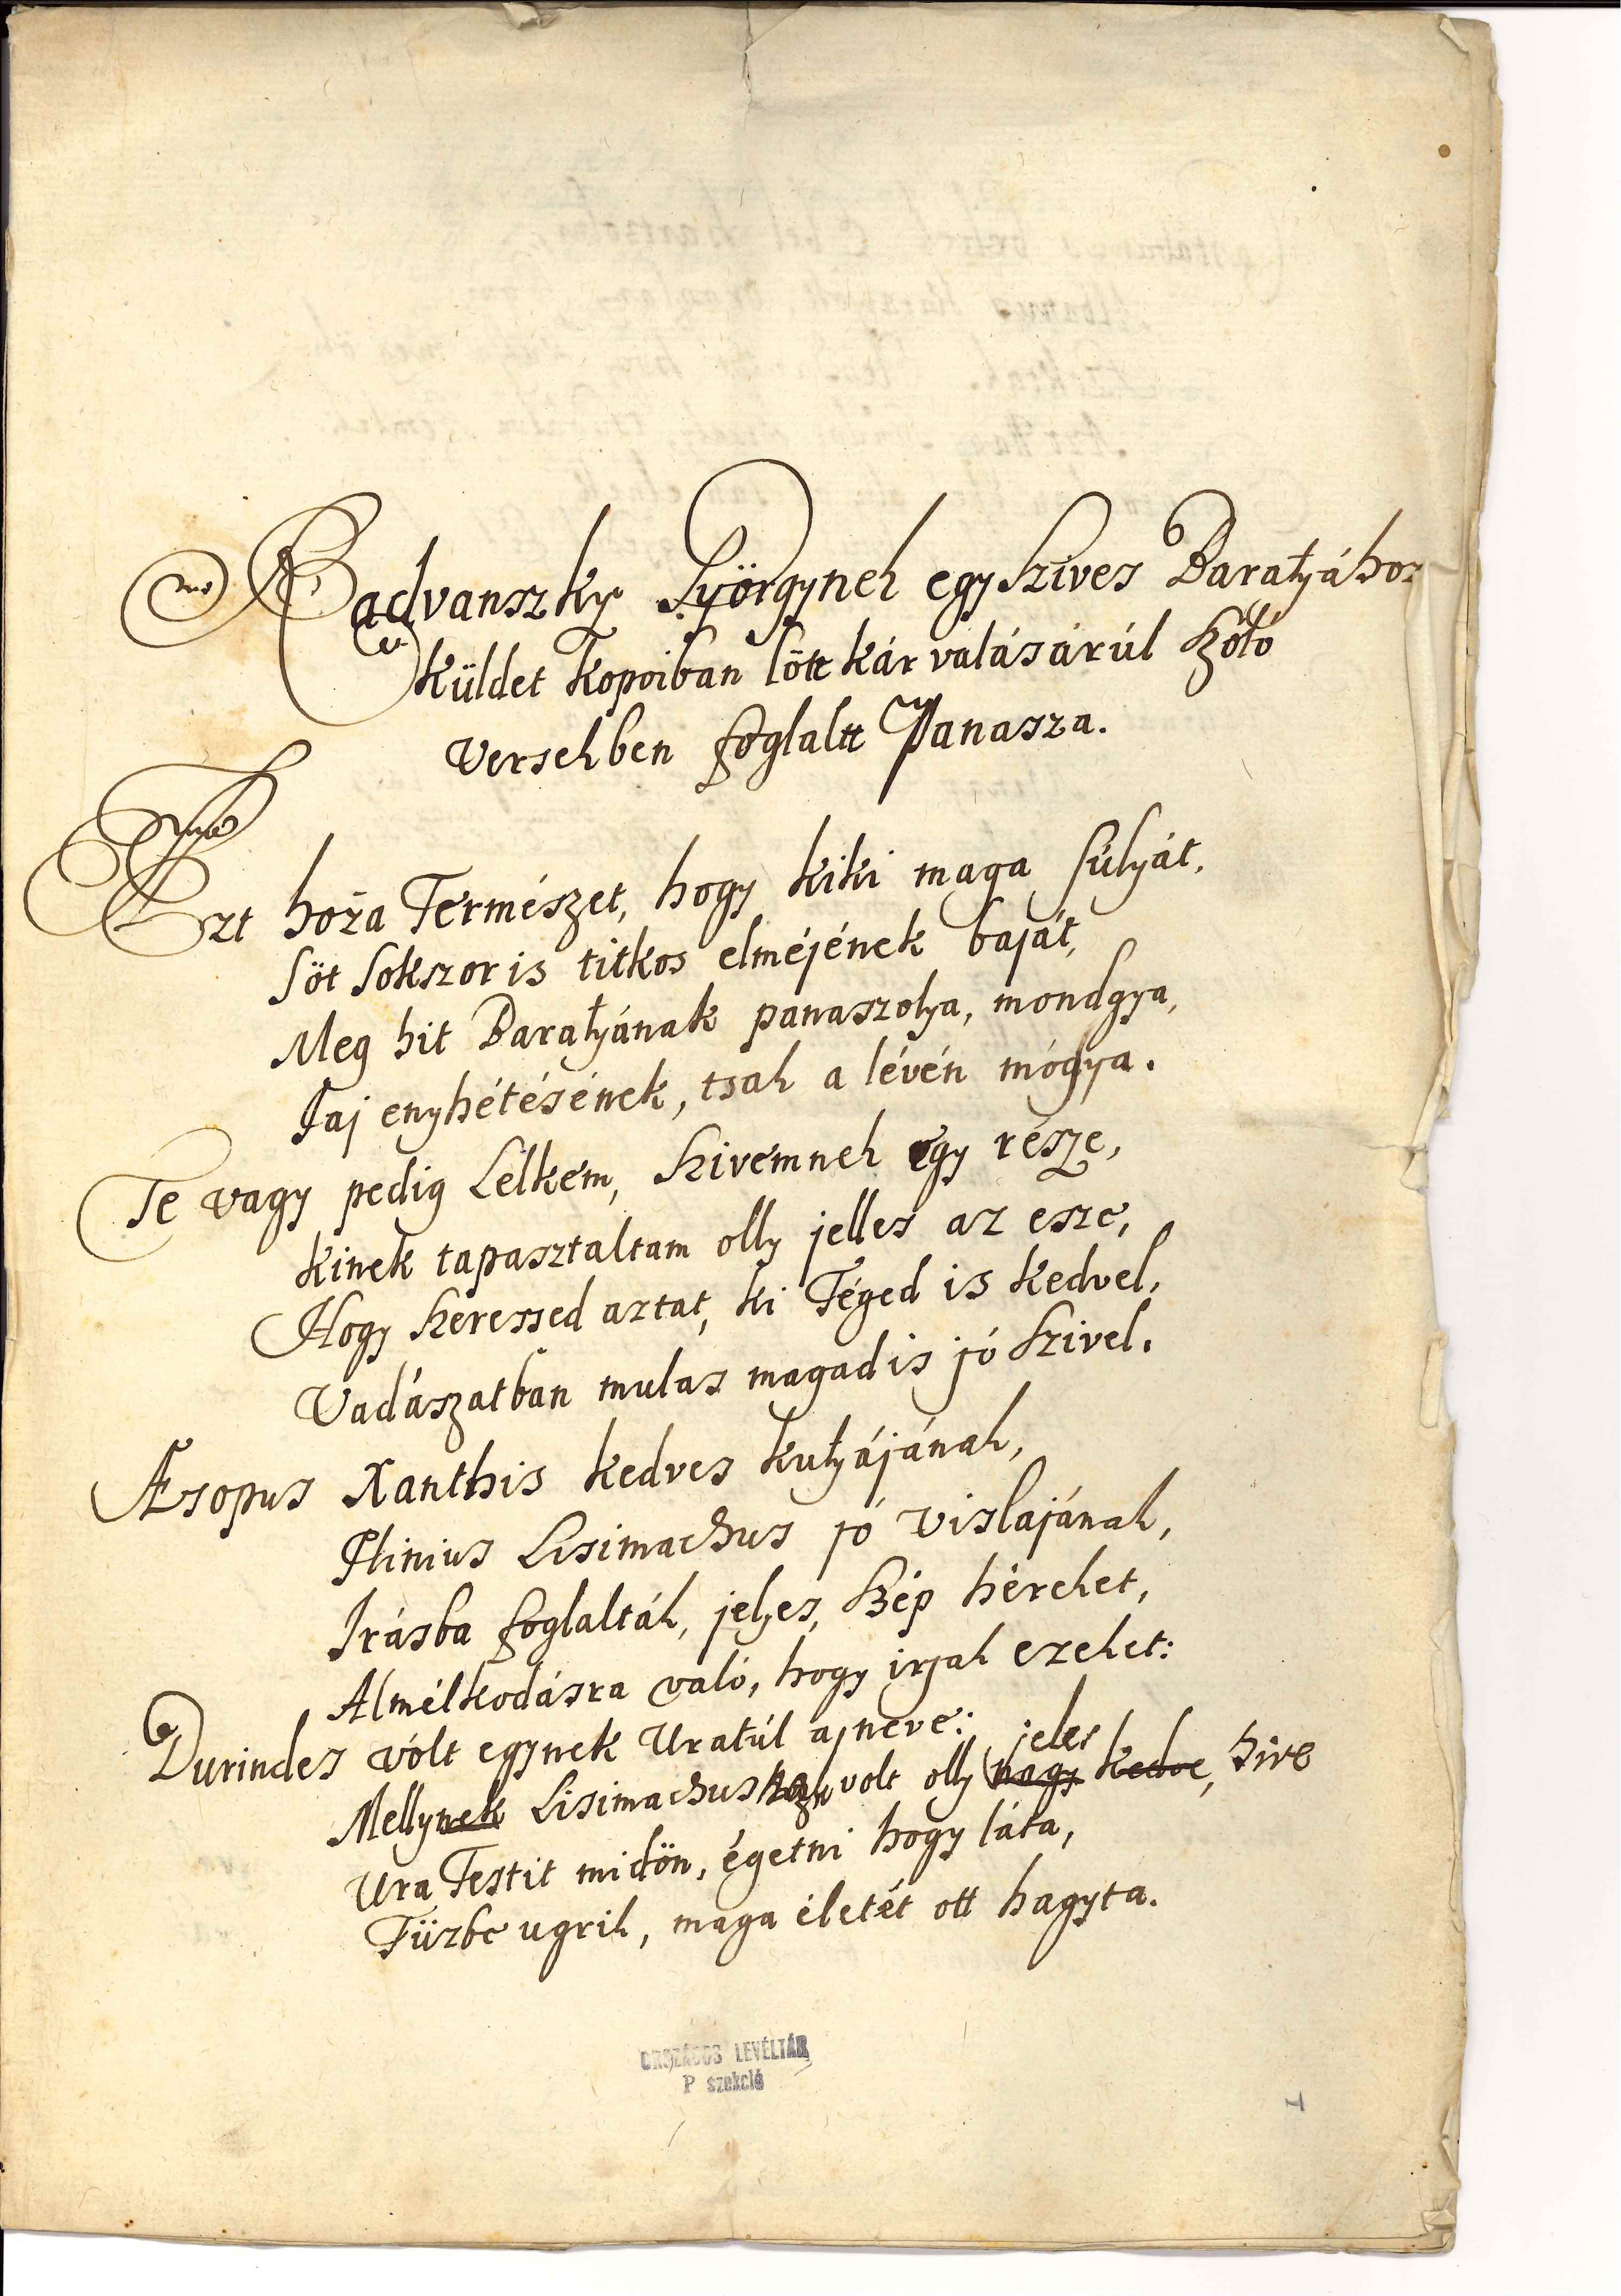 Radvanszky Györgynek egy Szives Baratyához
küldet kopoiban lött kár valásárúl szóló
versekben foglaltt Panasza.
Ezt hoza Természet, hogy kiki maga súlyát,
Söt sokszor is titkos elméjének baját,
Meg hit Baratyának panaszolya, mondgya,
Jaj enyhétésének, tsak a lévén mógya.
Te vagy pedig Lelkem, szivemnek egy része,
kinek tapasztaltam olly jelles az esze,
Hogy szeressed aztat, ki Téged is kedvel,
Vadászatban mulas magad is jó szivel.
Æsopus Xanthis kedves kutyájának,
Plinius Lisimachus jó vislajának,
Irásba foglalták, jelyes, szép héreket,
Almélkodásra való, hogy irjak ezeket:
Durindes vólt egynek Uratúl aj neve:
jeles
Mellynek Lisimachus volt olly nagy kedve, hire
Ura Testit midön, égetni hogy láta,
Tüzbe ugrik, maga életét ott hagyta.
ORSZÁGOS LEVÉLTÁR
P szekció